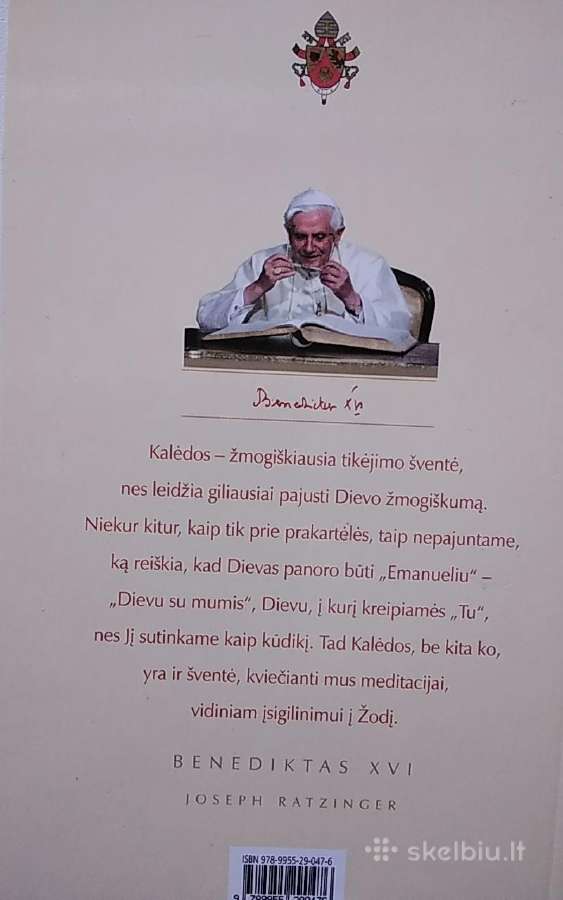 Benedictus XVI
Kalėdos – žmogiškiausia tikėjimo šventė,
nes leidžia giliausiai pajusti Dievo žmogiškumą.
Niekur kitur, kaip tik prie prakartėlės, taip nepajuntame,
ką reiškia, kad Dievas panoro būti „Emanueliu“ –
„Dievu su mumis“, Dievu, į kurį kreipiamės „Tu“,
nes Jį sutinkame kaip kūdikį. Tad Kalėdos, be kita ko,
yra ir šventė, kviečianti mus meditacijai,
vidiniam įsigilinimui į Žodį.
BENEDIKTAS XVI
JOSEPH RATZINGER
ISBN 978-9955-29-047-6
skelbiu.lt